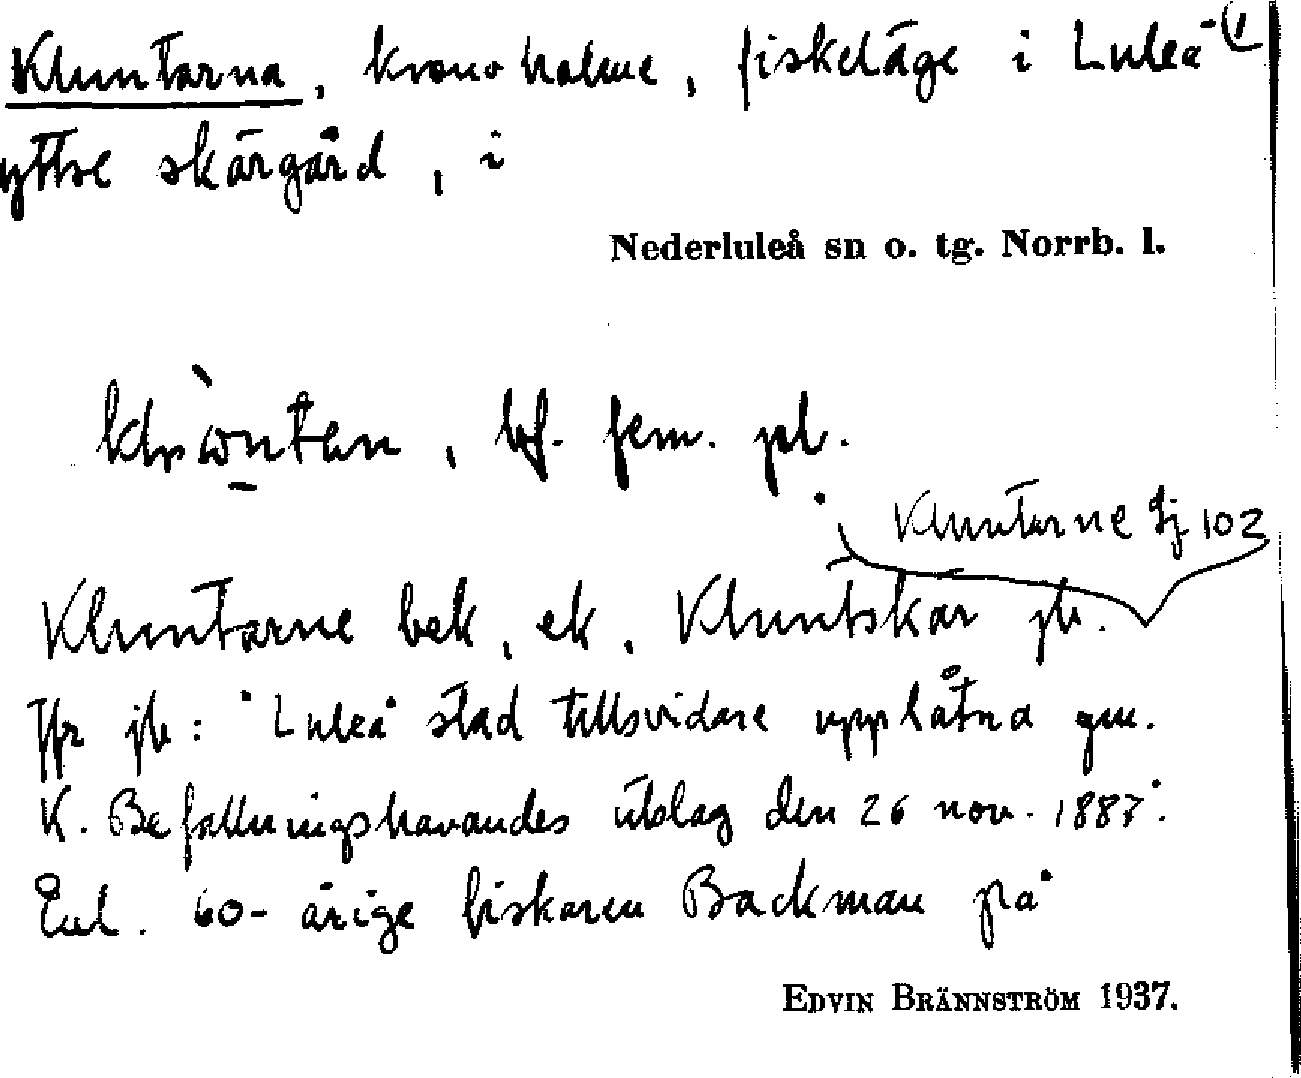 Kluntarna, kronoholme, fiskeläge i Luleå (1
yttre skärgård, i
Nederluleå sn o. tg. Norrb. l.
bf. fem. pl.
Kluntarne Sj 102
Kluntarne bek, ek, Kluntskär jb.
Jfr jb: "Luleå stad tillsvidare upplåtna gm.
K. Befallningshavandes utslag den 26 nov. 1887".
Enl. 60-årige fiskaren Backman på
EDVIN BRÄNNSTRÖM 1937.